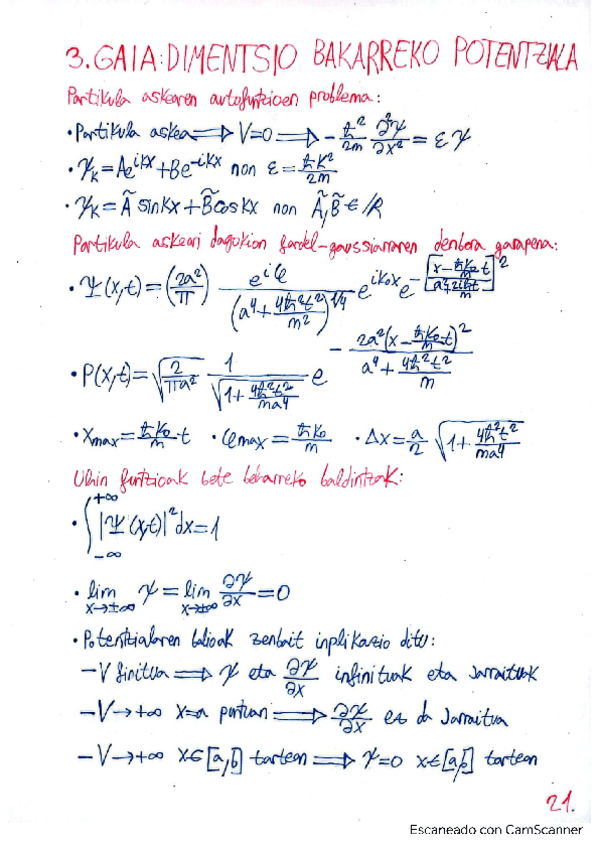 3. GAIA: DIMENTSIO BAKARREKO POTENTZIALA
Partikula askearen autofuntzioen problema:
• Partikula askea ⟹ V=0 ⟹ -ℏ²/2m ∂²ψ/∂x² = εψ
• ψ_K = Ae^{iKx} + Be^{-iKx} non ε = ℏK²/2m
• ψ_K = Ã sinKx + B̃ cosKx non Ã, B̃ ∈ ℝ
Partikula askeari dagokion fardel-gaussiarraren denbora garapena:
• Ψ(x,t) = (2a²/π) e^{iφ}/(a⁴ + 4ℏ²t²/m²)^{1/4} e^{iK₀x} e^{-[x - ℏK₀/m t]²/[a² + 2iℏt/m]}
• P(x,t) = √(2/πa²) 1/√(1 + 4ℏ²t²/ma⁴) e^{-2a²(x - ℏK₀/m t)²/(a⁴ + 4ℏ²t²/m)}
• x_max = ℏK₀/m t • φ_max = ℏK₀/m • Δx = a/2 √(1 + 4ℏ²t²/ma⁴)
Uhin funtzioak bete beharreko baldintzak:
• ∫_{-∞}^{+∞} |Ψ(x,t)|² dx = 1
• lim_{x→±∞} ψ = lim_{x→±∞} ∂ψ/∂x = 0
• Potentzialaren balioak zenbait inplikazio ditu:
- V finitua ⟹ ψ eta ∂ψ/∂x infinituak eta jarraituak
- V→+∞ x=a puntuan ⟹ ∂ψ/∂x ez da jarraitua
- V→+∞ x∈[a,b] tartean ⟹ ψ=0 x∈[a,b] tartean
21.
Escaneado con CamScanner